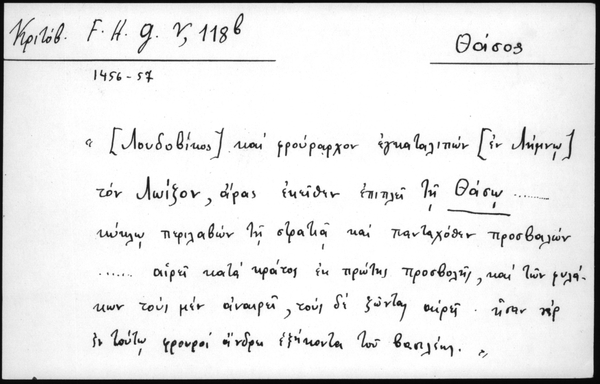 Κριτόβ. F. H. G. V, 118b
Θάσος
1456-57
« [Λουδοβίκος] καί φρούραρχον ἐγκαταλιπών [ἐν Λήμνῳ]
τόν Λωίξον, ἄρας ἐκεῖθεν ἐπιπλεῖ τῇ Θάσῳ ........
κύκλῳ περιλαβών τῇ στρατιᾷ καί πανταχόθεν προσβαλών
...... αἱρεῖ κατά κράτος ἐκ πρώτης προσβολῆς, καί τῶν φυλά-
κων τούς μέν ἀναιρεῖ, τούς δέ ζῶντας αἱρεῖ. ἦσαν γάρ
ἐν τούτῳ φρουροί ἄνδρες ἑξήκοντα τοῦ βασιλέως. »